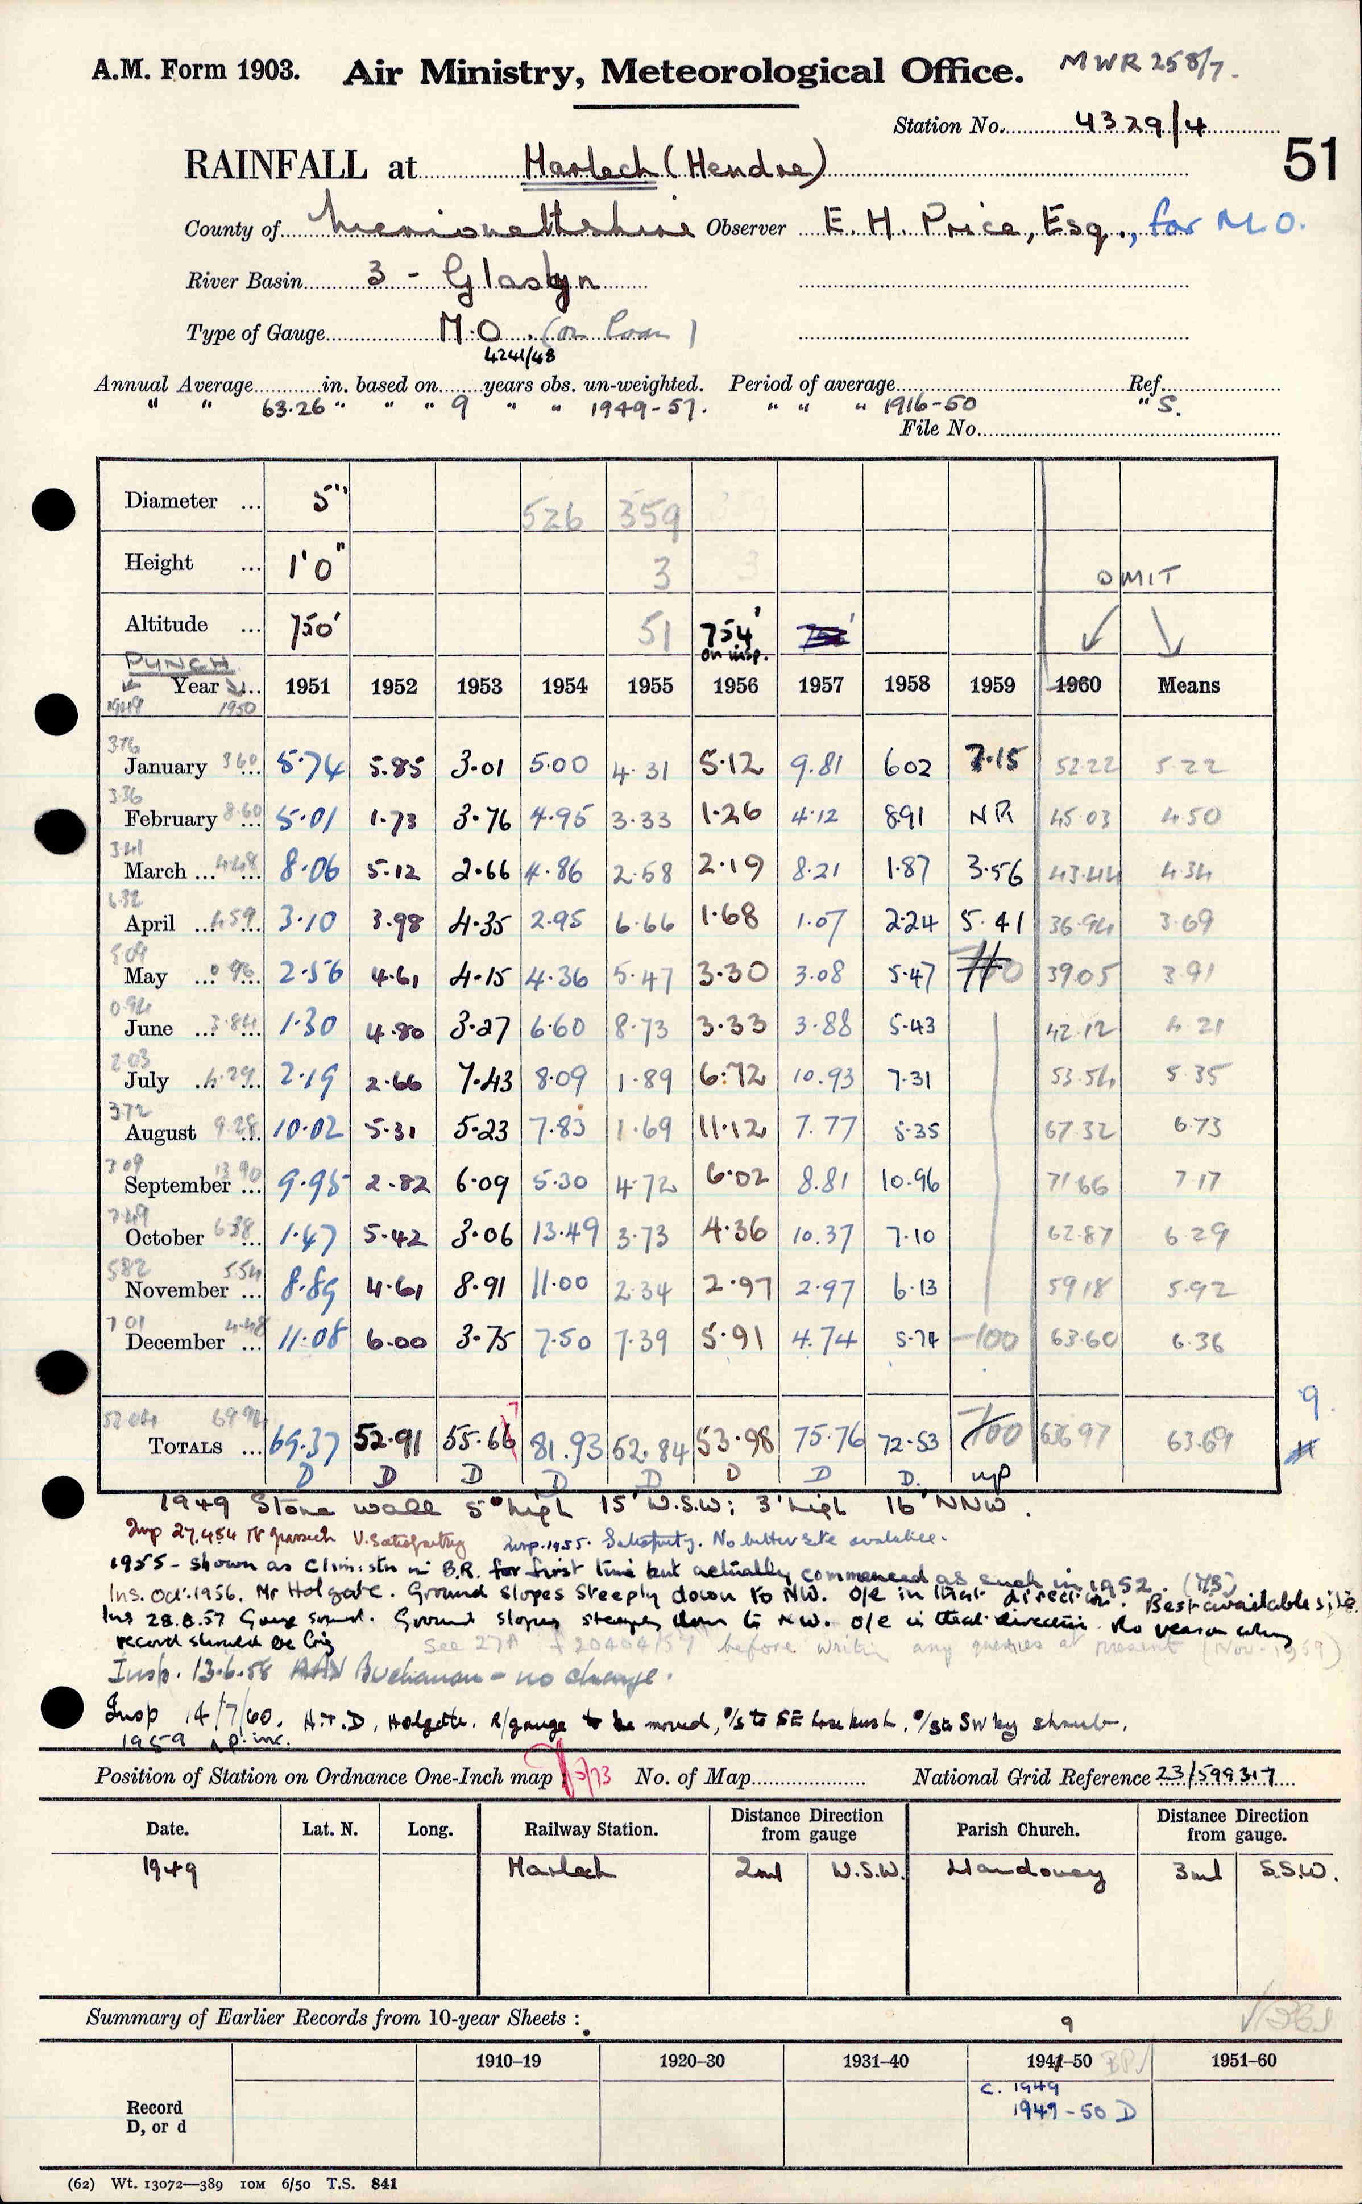 A.M. Form 1903. Air Ministry, Meteorological Office. MWR 258/7.
Station No. 4329/4
51
RAINFALL at Harlech (Hendre)
County of Merionethshire Observer E. H. Price, Esq., for M.O.
River Basin 3 - Glaslyn
Type of Gauge M.O. (on loan)
4241/48
Annual Average in. based on years obs. un-weighted. Period of average Ref.
" " 63.26 " " " 9 " " 1949-57. " " " 1916-50 " S.
File No.
Diameter ... 5" 526 359
Height ... 1'0" 3 3 OMIT
Altitude ... 750' 51 754' on insp.
PUNCH
Year ... 1951 1952 1953 1954 1955 1956 1957 1958 1959 1960 Means
1949 1950
376
January 3.60 ... 5.74 5.85 3.01 5.00 4.31 5.12 9.81 602 7.15 52.22 5.22
336
February 8.60 ... 5.01 1.73 3.76 4.95 3.33 1.26 4.12 891 NR 45.03 4.50
341
March ... 4.48 ... 8.06 5.12 2.66 4.86 2.58 2.19 8.21 1.87 3.56 43.44 4.34
6.32
April ... 4.59 ... 3.10 3.98 4.35 2.95 6.66 1.68 1.07 2.24 5.41 36.94 3.69
5.09
May ... 0.96 ... 2.56 4.61 4.15 4.36 5.47 3.30 3.08 5.47 39.05 3.91
0.94
June ... 3.84 ... 1.30 4.80 3.27 6.60 8.73 3.33 3.88 5.43 42.12 4.21
2.03
July ... 4.29 ... 2.19 2.66 7.43 8.09 1.89 6.72 10.93 7.31 53.54 5.35
372
August 9.28 ... 10.02 5.31 5.23 7.83 1.69 11.12 7.77 5.35 67.32 6.73
3.09
September 13.90 ... 9.95 2.82 6.09 5.30 4.72 6.02 8.81 10.96 71.66 7.17
7.49
October 6.38 ... 1.47 5.42 3.06 13.49 3.73 4.36 10.37 7.10 62.87 6.29
582
November 5.54 ... 8.89 4.61 8.91 11.00 2.34 2.97 2.97 6.13 59.18 5.92
7.01
December 4.48 ... 11.08 6.00 3.75 7.50 7.39 5.91 4.74 5.74 -100 63.60 6.36
9
52.04 69.94
TOTALS ... 69.37 52.91 55.66 7 81.93 52.84 53.98 75.76 72.53 636.97 63.69
D D D D D D D D. up
1949 Stone wall 5' high 15' W.S.W; 3' high 16' NNW.
Insp 27.4.54 V. Satisfactory Insp. 1955. Satisfactory. No better site available.
1955 - Shown as Clim. stn in B.R. for first time but actually commenced as such in 1952.
Ins. Oct. 1956. Mr Holgate. Ground slopes steeply down to NW. O/E in that direction. Best available site.
Ins 28.8.57 Gauge sound. Ground slopes steeply down to NW. O/E in that direction. No reason why
record should be big See 27A f 20404/57 before writing any queries at present (Nov. 1959)
Insp. 13.6.58 Buchanan - no change.
Insp 14/7/60. H.T.D, Holgate. R/gauge to be moved, o/s to SE bush, o/s to SW by shrub.
1959
Position of Station on Ordnance One-Inch map No. of Map National Grid Reference 23/599317
Date. Lat. N. Long. Railway Station. Distance Direction from gauge Parish Church. Distance Direction from gauge.
1949 Harlech 2ml W.S.W. Llandanwg 3ml S.S.W.
Summary of Earlier Records from 10-year Sheets :
9
1910–19 1920–30 1931–40 1941–50 1951–60
Record
D, or d
c. 1949
1949-50 D
(62) Wt. 13072—389 10M 6/50 T.S. 841